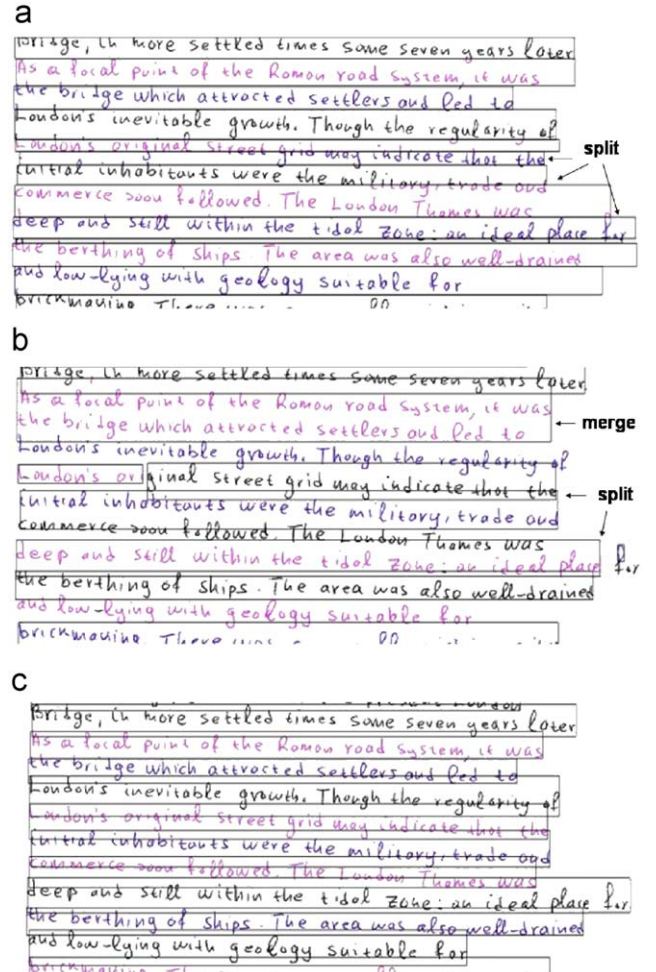 a
Bridge, in more settled times some seven years later
As a focal point of the Roman road system, it was
the bridge which attracted settlers and led to
London's inevitable growth. Though the regularity of
London's original street grid may indicate that the
split
initial inhabitants were the military, trade and
commerce soon followed. The London Thames was
deep and still within the tidal zone: an ideal place for
the berthing of ships. The area was also well-drained
and low-lying with geology suitable for
brickmaking. There was
b
Bridge, in more settled times some seven years later
As a focal point of the Roman road system, it was
the bridge which attracted settlers and led to
merge
London's inevitable growth. Though the regularity of
London's original street grid may indicate that the
split
initial inhabitants were the military, trade and
commerce soon followed. The London Thames was
deep and still within the tidal zone: an ideal place for
the berthing of ships. The area was also well-drained
and low-lying with geology suitable for
brickmaking. There was
c
Bridge, in more settled times some seven years later
As a focal point of the Roman road system, it was
the bridge which attracted settlers and led to
London's inevitable growth. Though the regularity of
London's original street grid may indicate that the
initial inhabitants were the military, trade and
commerce soon followed. The London Thames was
deep and still within the tidal zone: an ideal place for
the berthing of ships. The area was also well-drained
and low-lying with geology suitable for
brickmaking.